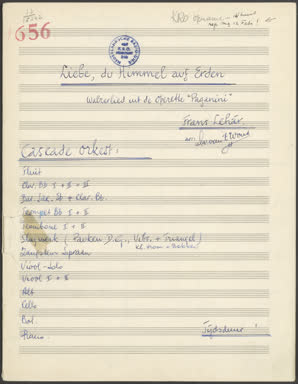 656
Liebe, du Himmel auf Erden
Walzerlied uit de Operette "Paganini"
Frans Lehár
arr.
Cascade orkest:
Fluit
Clar. Bb I + II + III
Bas. Sax. Bb + Clar. Bb.
Trompet Bb I + II
Trombone I + II
Slagwerk (Pauken, D.C., Vibr. + Triangel)
Kl. trom + Bekken
Sopraan
Viool-Solo
Viool I + II
Alt
Cello
Bas.
Piano.
Tijdsduur: